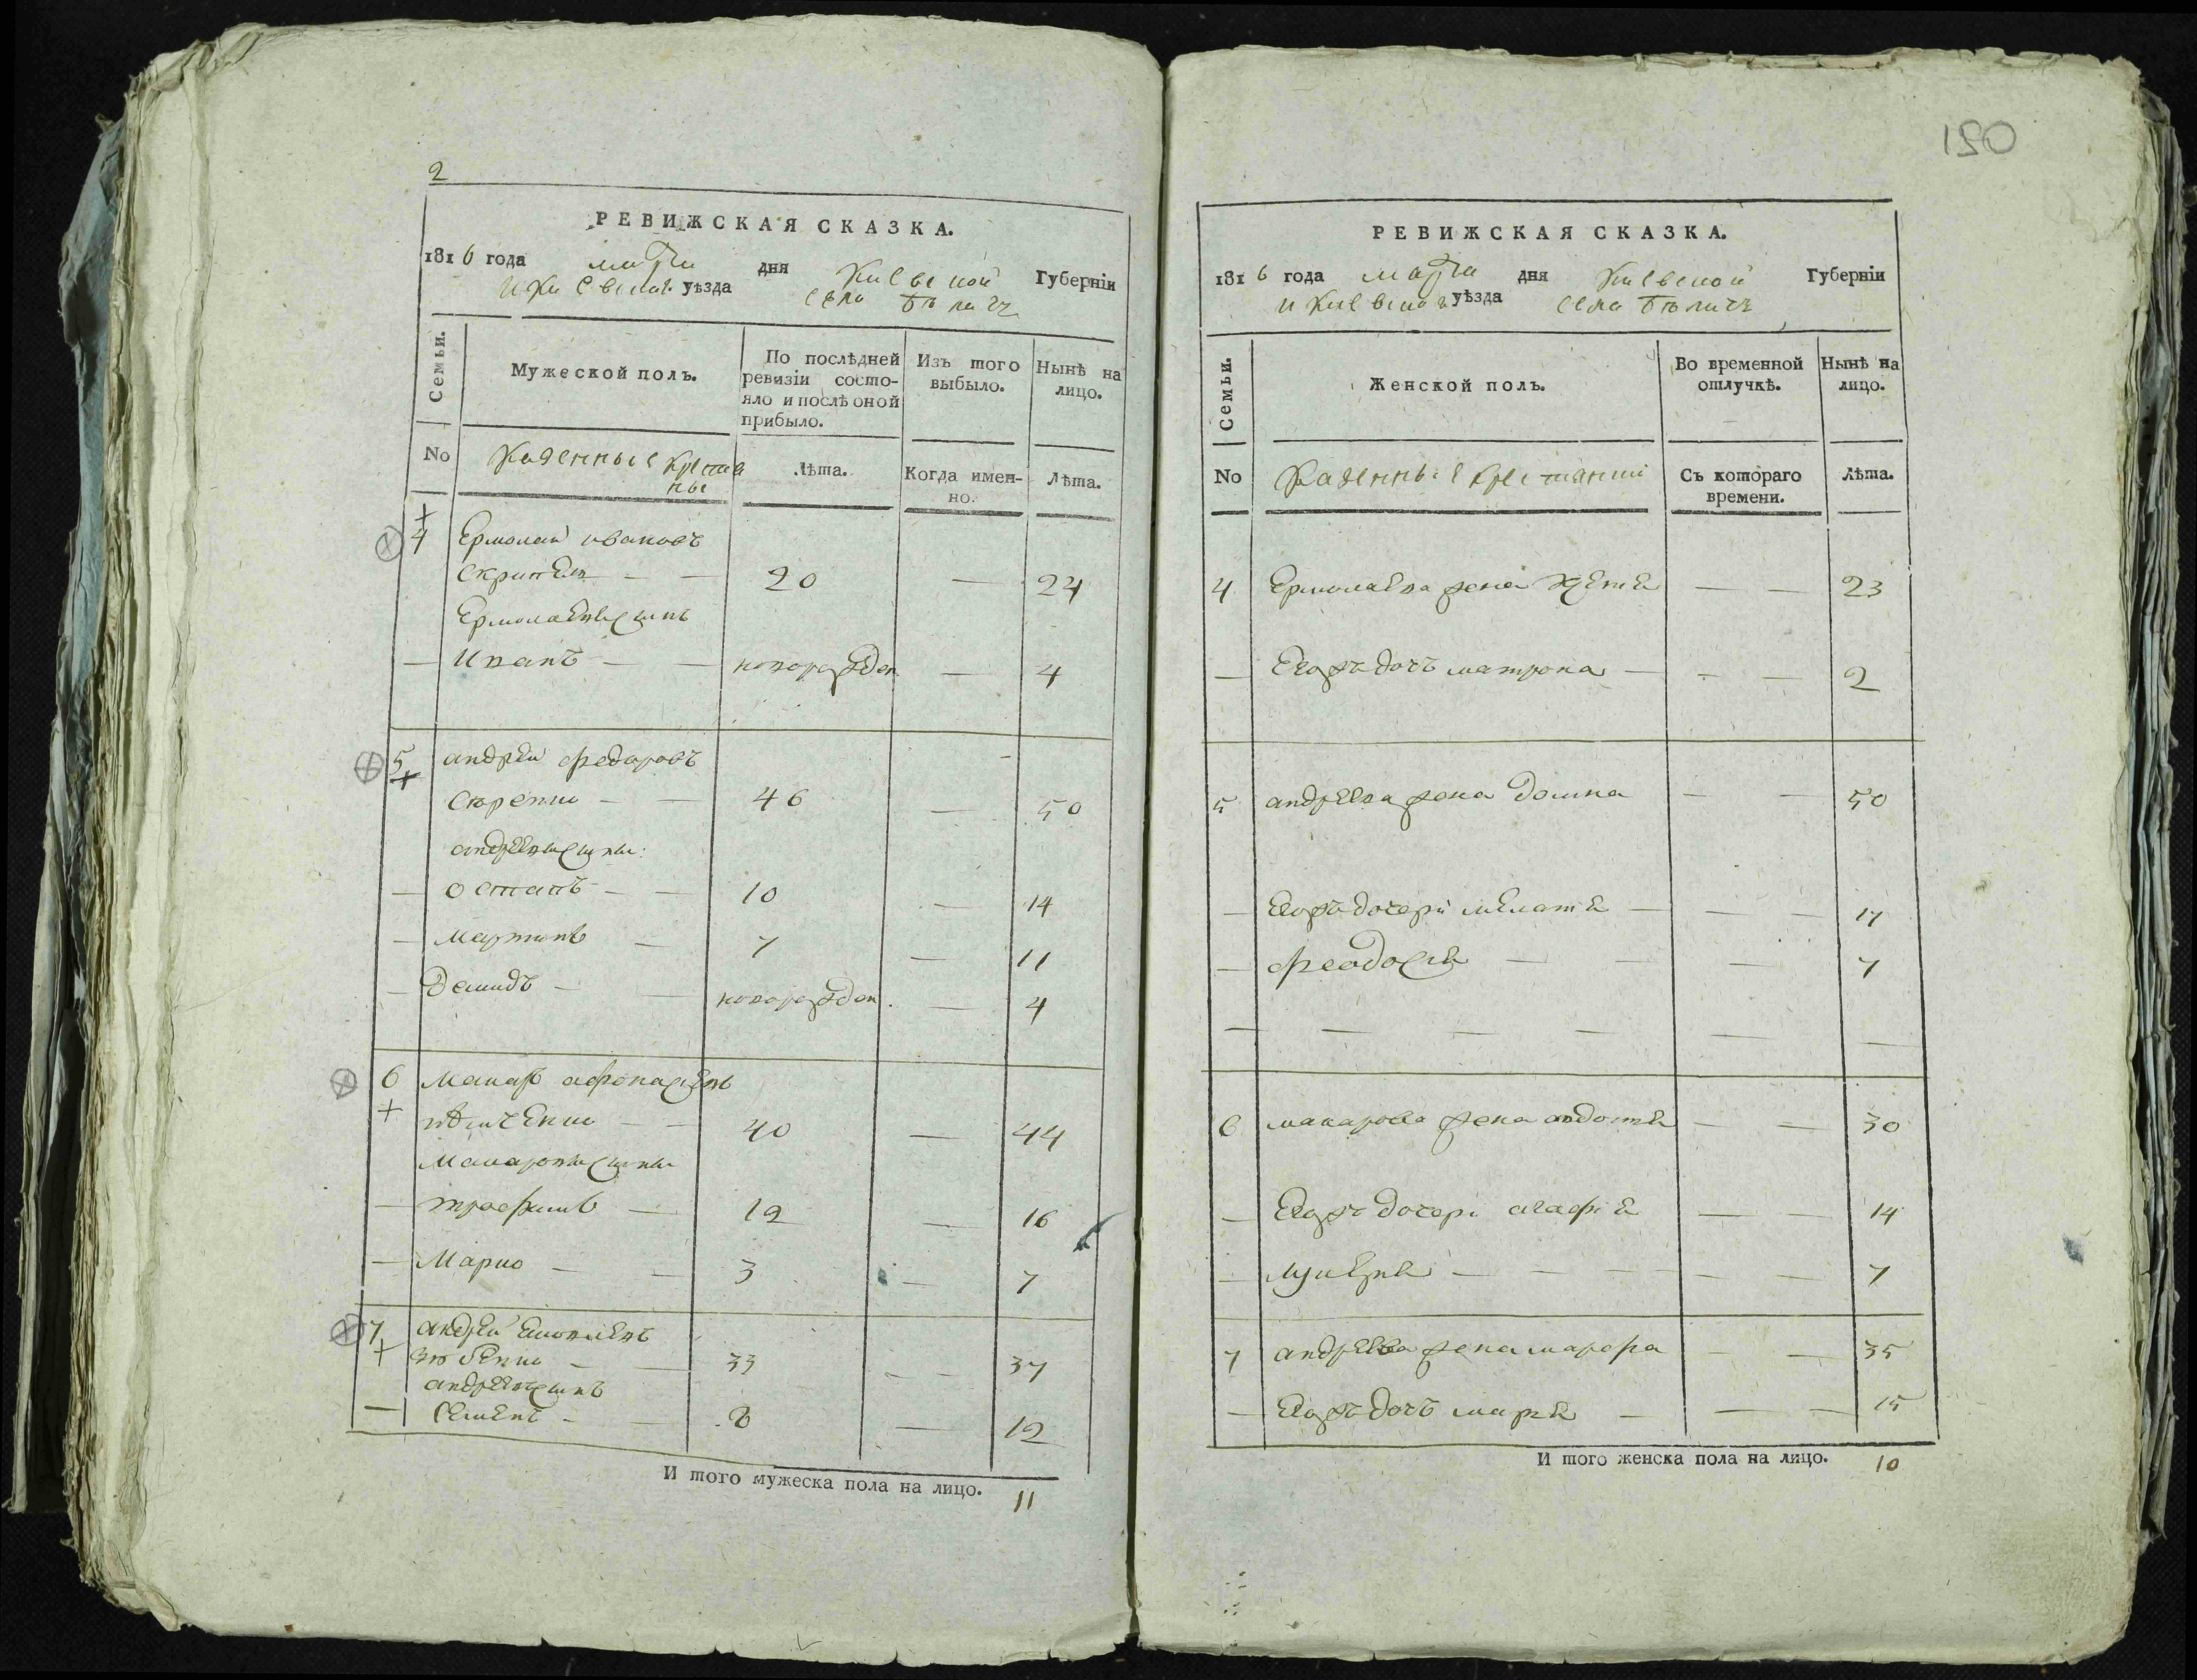 2
РЕВИЖСКАЯ СКАЗКА.
1816 года марта дня Киевской Губерніи
и Киевскаго уѣзда села Бѣличъ
Семьи.
Мужеской полъ.
По послѣдней ревизіи состо-
яло и послѣ оной
прибыло.
Изъ того
выбыло.
Нынѣ на
лицо.
No
Казенные крестья
ны
Лѣта.
Когда имен-
но.
Лѣта.
+
4 Ермолай ивановъ
скрипка — — 20 — 24
Ермолаевъ сынъ
— Иванъ — — новорожден — 4
5 андрей федоровъ
+
46 — 50
андреевы сыны:
— остапъ — — 10 — 14
— мартинъ — 7 — 11
— Демидъ — — новорожден. — 4
6 Макаръ афонасіевъ
+ — — 40 — 44
Макаровы сыны
— трофимъ — 12 — 16
— Марко — — 3 — 7
7 андрей
+ зубенко — — 33 — — 37
андреевъ сынъ
— Семенъ — — 8 — 12
И того мужеска пола на лицо. 11
150
РЕВИЖСКАЯ СКАЗКА.
1816 года марта дня Киевской Губерніи
и Киевскаго уѣзда села Бѣличъ
Семьи.
Женской полъ.
Во временной
отлучкѣ.
Нынѣ на
лицо.
No
Казенныіе крестянки
Съ котораго
времени.
Лѣта.
4 Ермолаева жена — — 23
— Егожъ дочъ матрона — — — 2
5 андреева жена Домна — — 50
— Егожъ дочери мелания — — — 17
— феодосія — — — 7
— — — — — —
6 макарова жена авдотія — — 30
— Егожъ дочери агафія — — 14
— лукерия — — — — — 7
7 андреева жена марфа — — 35
— Егожъ дочъ мария — — — 15
И того женска пола на лицо. 10